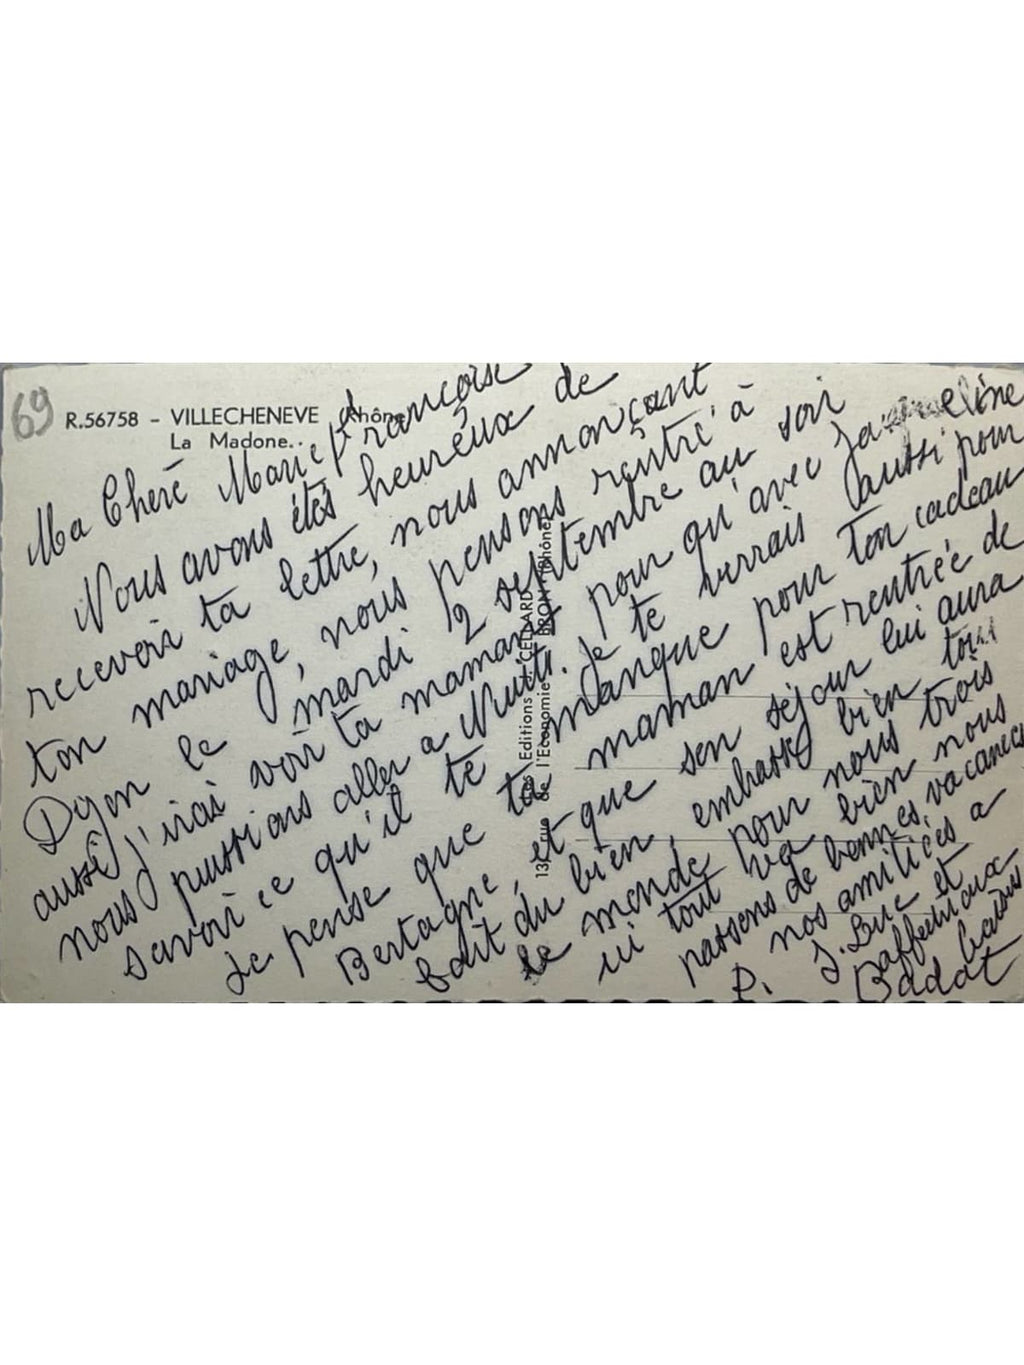 69
R.56758 - VILLECHENEVE (Rhône)
La Madone..
Ma Cheré Marie Françoise
Nous avons étés heureux de
recevoir ta lettre, nous annonçant
ton mariage, nous pensons rentré à
Dijon le mardi 2 septembre au soir
aussi j'irai voir ta maman pour qu'avec Jaqueline
nous puissions aller a Nuits. Je te verrais aussi pour
savoir ce qu'il te manque pour ton cadeau
Je pense que ta maman est rentrée de
Bertagne, et que son séjour lui aura
fait du bien, embasse bien tout
le monde pour nous trois
ici tout va bien nous
passons de bonnes vacances
nos amitiés a
P. J. Luc et
affectueux
baisers
Badat
Les Editions de CELLARD
13, rue de l'Economie BRON (Rhône)